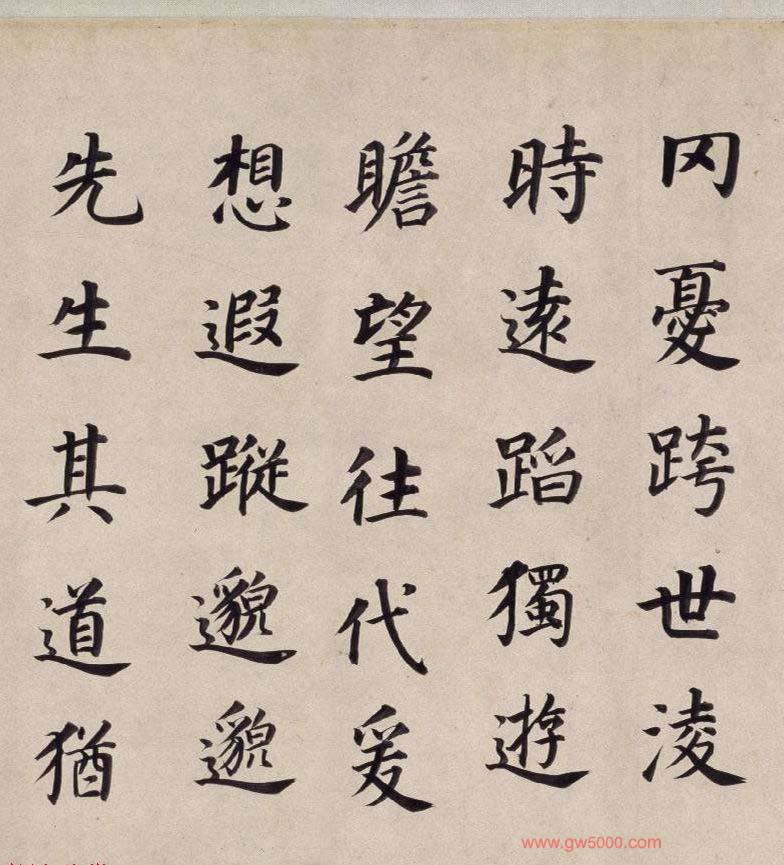 罔憂跨世淩
時遠蹈獨遊
瞻望往代爰
想遐蹤邈邈
先生其道猶
www.gw5000.com